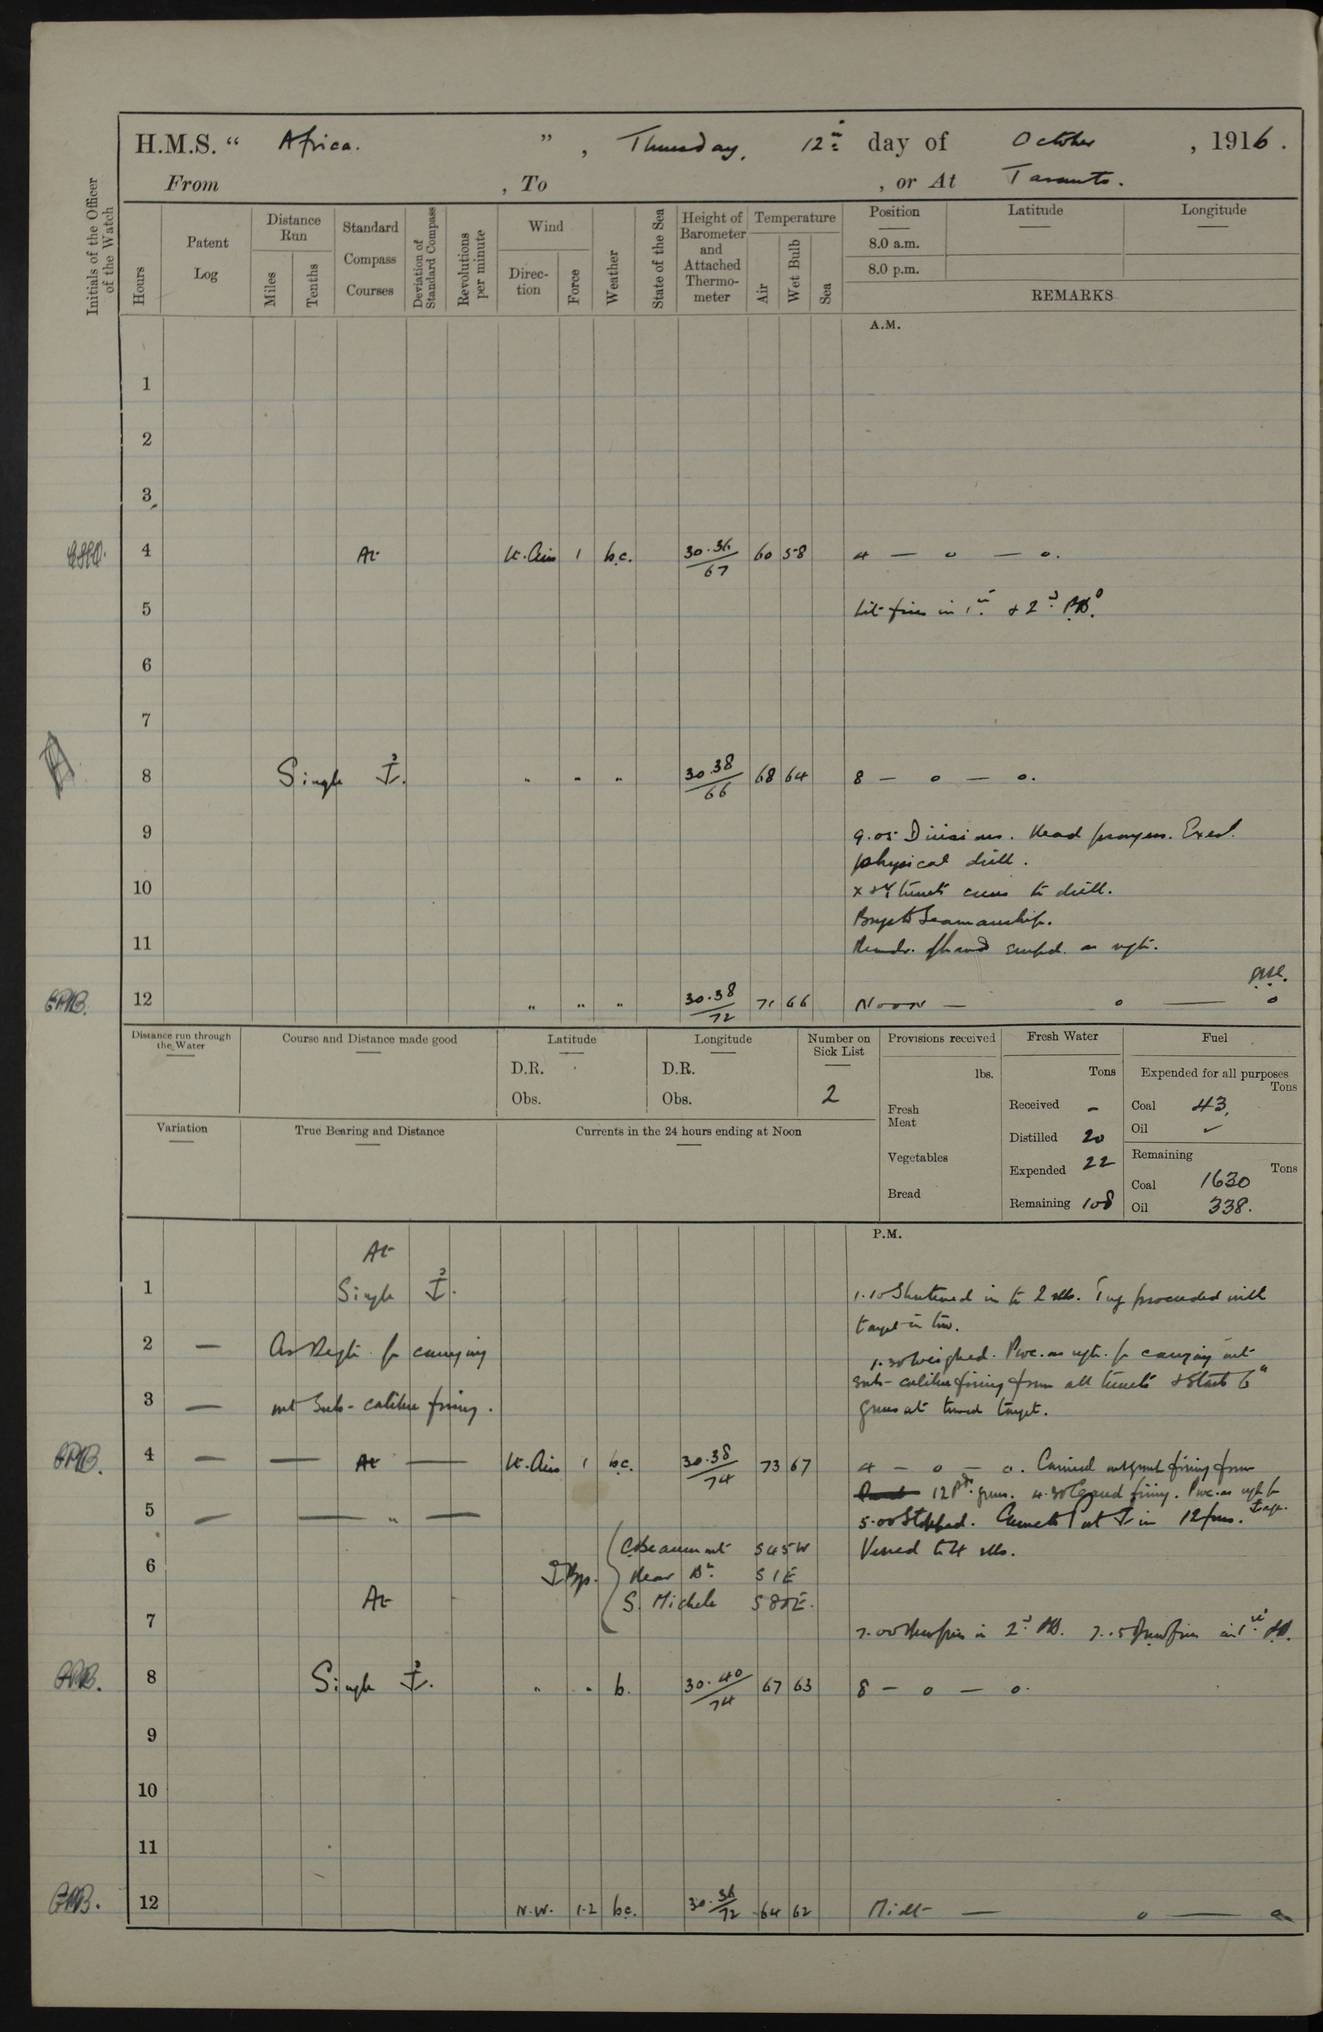 H.M.S. “ Africa. ” , Thursday, 12th day of October , 1916.
From , To , or At Taranto.
Initials of the Officer of the Watch
Hours
Patent Log
Distance Run
Miles
Tenths
Standard Compass Courses
Deviation of Standard Compass
Revolutions per minute
Wind
Direction
Force
Weather
State of the Sea
Height of Barometer and Attached Thermometer
Temperature
Air
Wet Bulb
Sea
Position Latitude Longitude
8.0 a.m.
8.0 p.m.
REMARKS
A.M.
1
2
3
4 At Lt. Airs 1 b.c. 30.36/67 60 58 4 — o — o.
5 Lit fires in 1st & 2nd P.B.
6
7
8 Single ⚓. " " " 30.38/66 68 64 8 — o — o.
9 9.05 Divisions. Read prayers. Exed.
physical drill.
10 X & Y turrets crews to drill.
Boys to Seamanship.
11 Remdr. of hands empd. as reqte.
12 " " " 30.38/72 71 66 Noon — o — o
Distance run through the Water
Course and Distance made good
Latitude
D.R.
Obs.
Longitude
D.R.
Obs.
Number on Sick List
2
Provisions received
lbs.
Fresh Meat
Vegetables
Bread
Fresh Water
Tons
Received -
Distilled 20
Expended 22
Remaining 108
Fuel
Expended for all purposes
Tons
Coal 43.
Oil ✓
Remaining
Tons
Coal 1630
Oil 338.
Variation
True Bearing and Distance
Currents in the 24 hours ending at Noon
P.M.
At
1 Single ⚓. 1.10 Shortened in to 2 slls. Tug proceeded with
target in tow.
2 — As Reqte. for carrying 1.30 Weighed. Proc. as reqte. for carrying out
sub-calibre firing from all turrets & Starb 6"
3 — out Sub-calibre firing. guns at towed target.
4 — — At — Lt. Airs 1 b.c. 30.38/74 73 67 4 — o — o. Carried out firing from
12 Pdr. guns. 4.30 Ceased firing. Proc. as reqte for
5 — — " — 5.00 Stopped. Came to Port ⚓ in 12 fms.
C. Beaumont S45W Veered to 4 slls.
6 ⚓ Bgs. Near Bn. S1E
At S. Michele S80E.
7 7.00 Drew fires in 2nd P.B. 7.15 Drew fires in 1st P.B.
8 Single ⚓. " " b. 30.40/74 67 63 8 — o — o.
9
10
11
12 N.W. 1-2 b.c. 30.36/72 64 62 Midt — o — o